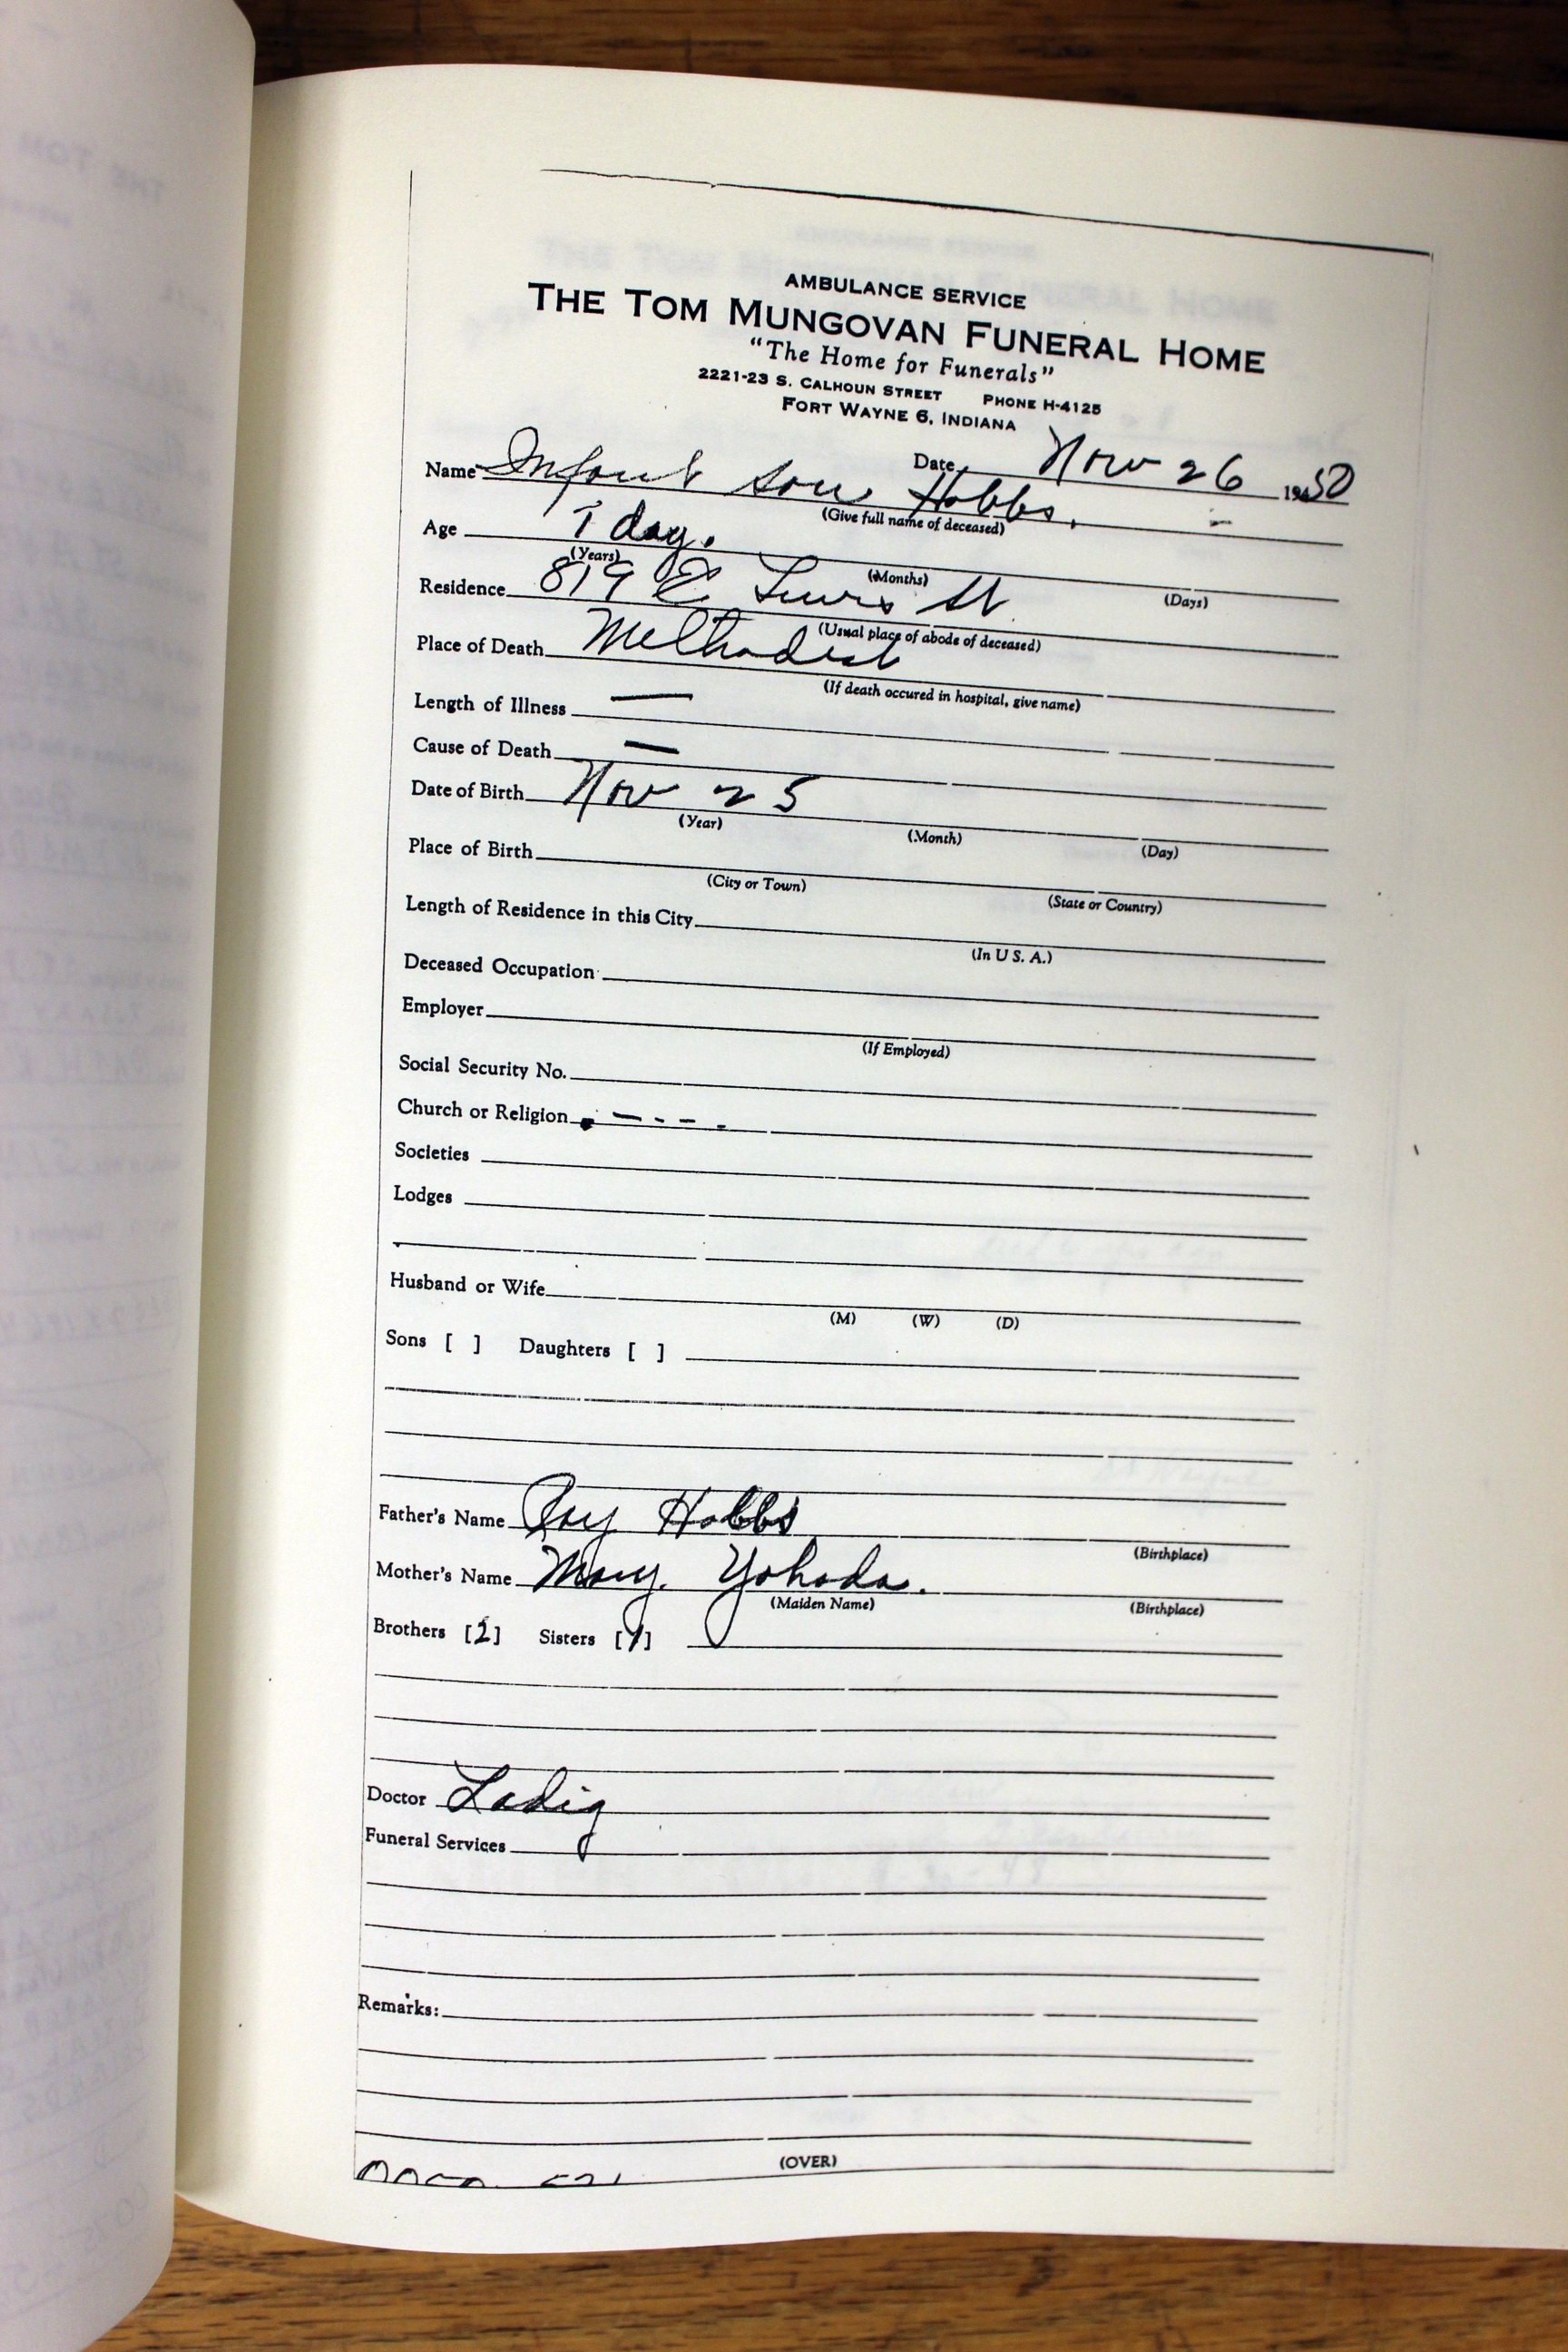 AMBULANCE SERVICE
THE TOM MUNGOVAN FUNERAL HOME
"The Home for Funerals"
2221-23 S. CALHOUN STREET PHONE H-4125
FORT WAYNE 6, INDIANA
Date Nov 26 1950
Name Infant son Hobbs.
(Give full name of deceased)
Age 1 day.
(Years) (Months) (Days)
Residence 819 E Lewis St
(Usual place of abode of deceased)
Place of Death Methodist
(If death occured in hospital, give name)
Length of Illness —
Cause of Death —
Date of Birth Nov 25
(Year) (Month) (Day)
Place of Birth
(City or Town) (State or Country)
Length of Residence in this City
(In U S. A.)
Deceased Occupation
Employer
(If Employed)
Social Security No.
Church or Religion - - - -
Societies
Lodges
Husband or Wife
(M) (W) (D)
Sons [ ] Daughters [ ]
Father's Name Roy Hobbs
(Birthplace)
Mother's Name Mary. Yohoda.
(Maiden Name) (Birthplace)
Brothers [2] Sisters [1]
Doctor Ladig
Funeral Services
Remarks:
(OVER)